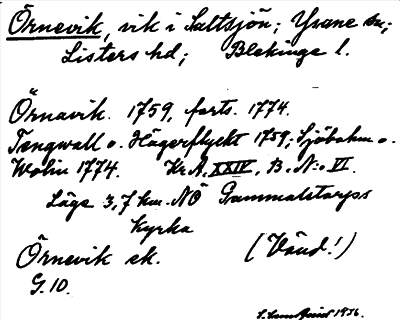 Örnevik, vik i Saltsjön; Ysane sn;
Listers hd; Blekinge l.
Örnavik. 1759, forts. 1774.
Tengwall o. Hägerflyckt 1759; Sjöbohm o.
Wolin 1774. Kr. A. XXIV, B. N:o VI.
Läge 3,7 km. NÖ Gammalstorps
kyrka
Örnevik ek. (Vänd!)
G. 10.
1936.